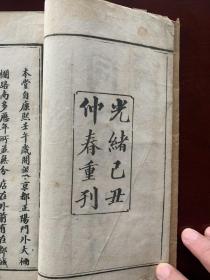 光緒己丑
仲春重刊
本堂自康熙壬午歲開設京都正陽門外大柵
欄路南多歷年所並無分店在外前有在都城